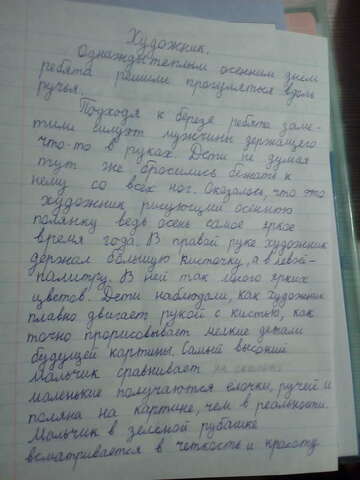 Художник.
Однажды теплым осенним днем
ребята решили прогуляться вдоль
ручья.
Подходя к березе ребята заме-
тили силуэт мужчины держащего
что-то в руках. Дети не думая
тут же бросились бежать к
нему со всех ног. Оказалось, что это
художник рисующий осеннюю
полянку ведь осень самое яркое
время года. В правой руке художник
держал большую кисточку, а в левой-
палитру. В ней так много ярких
цветов. Дети наблюдали, как художник
плавно двигает рукой с кистью, как
точно прорисовывает мелкие детали
будущей картины. Самый высокий
мальчик сравнивает на сколько
маленькие получаются елочки, ручей и
поляна на картине, чем в реальности.
Мальчик в зеленой рубашке
всматривается в четкость и красоту